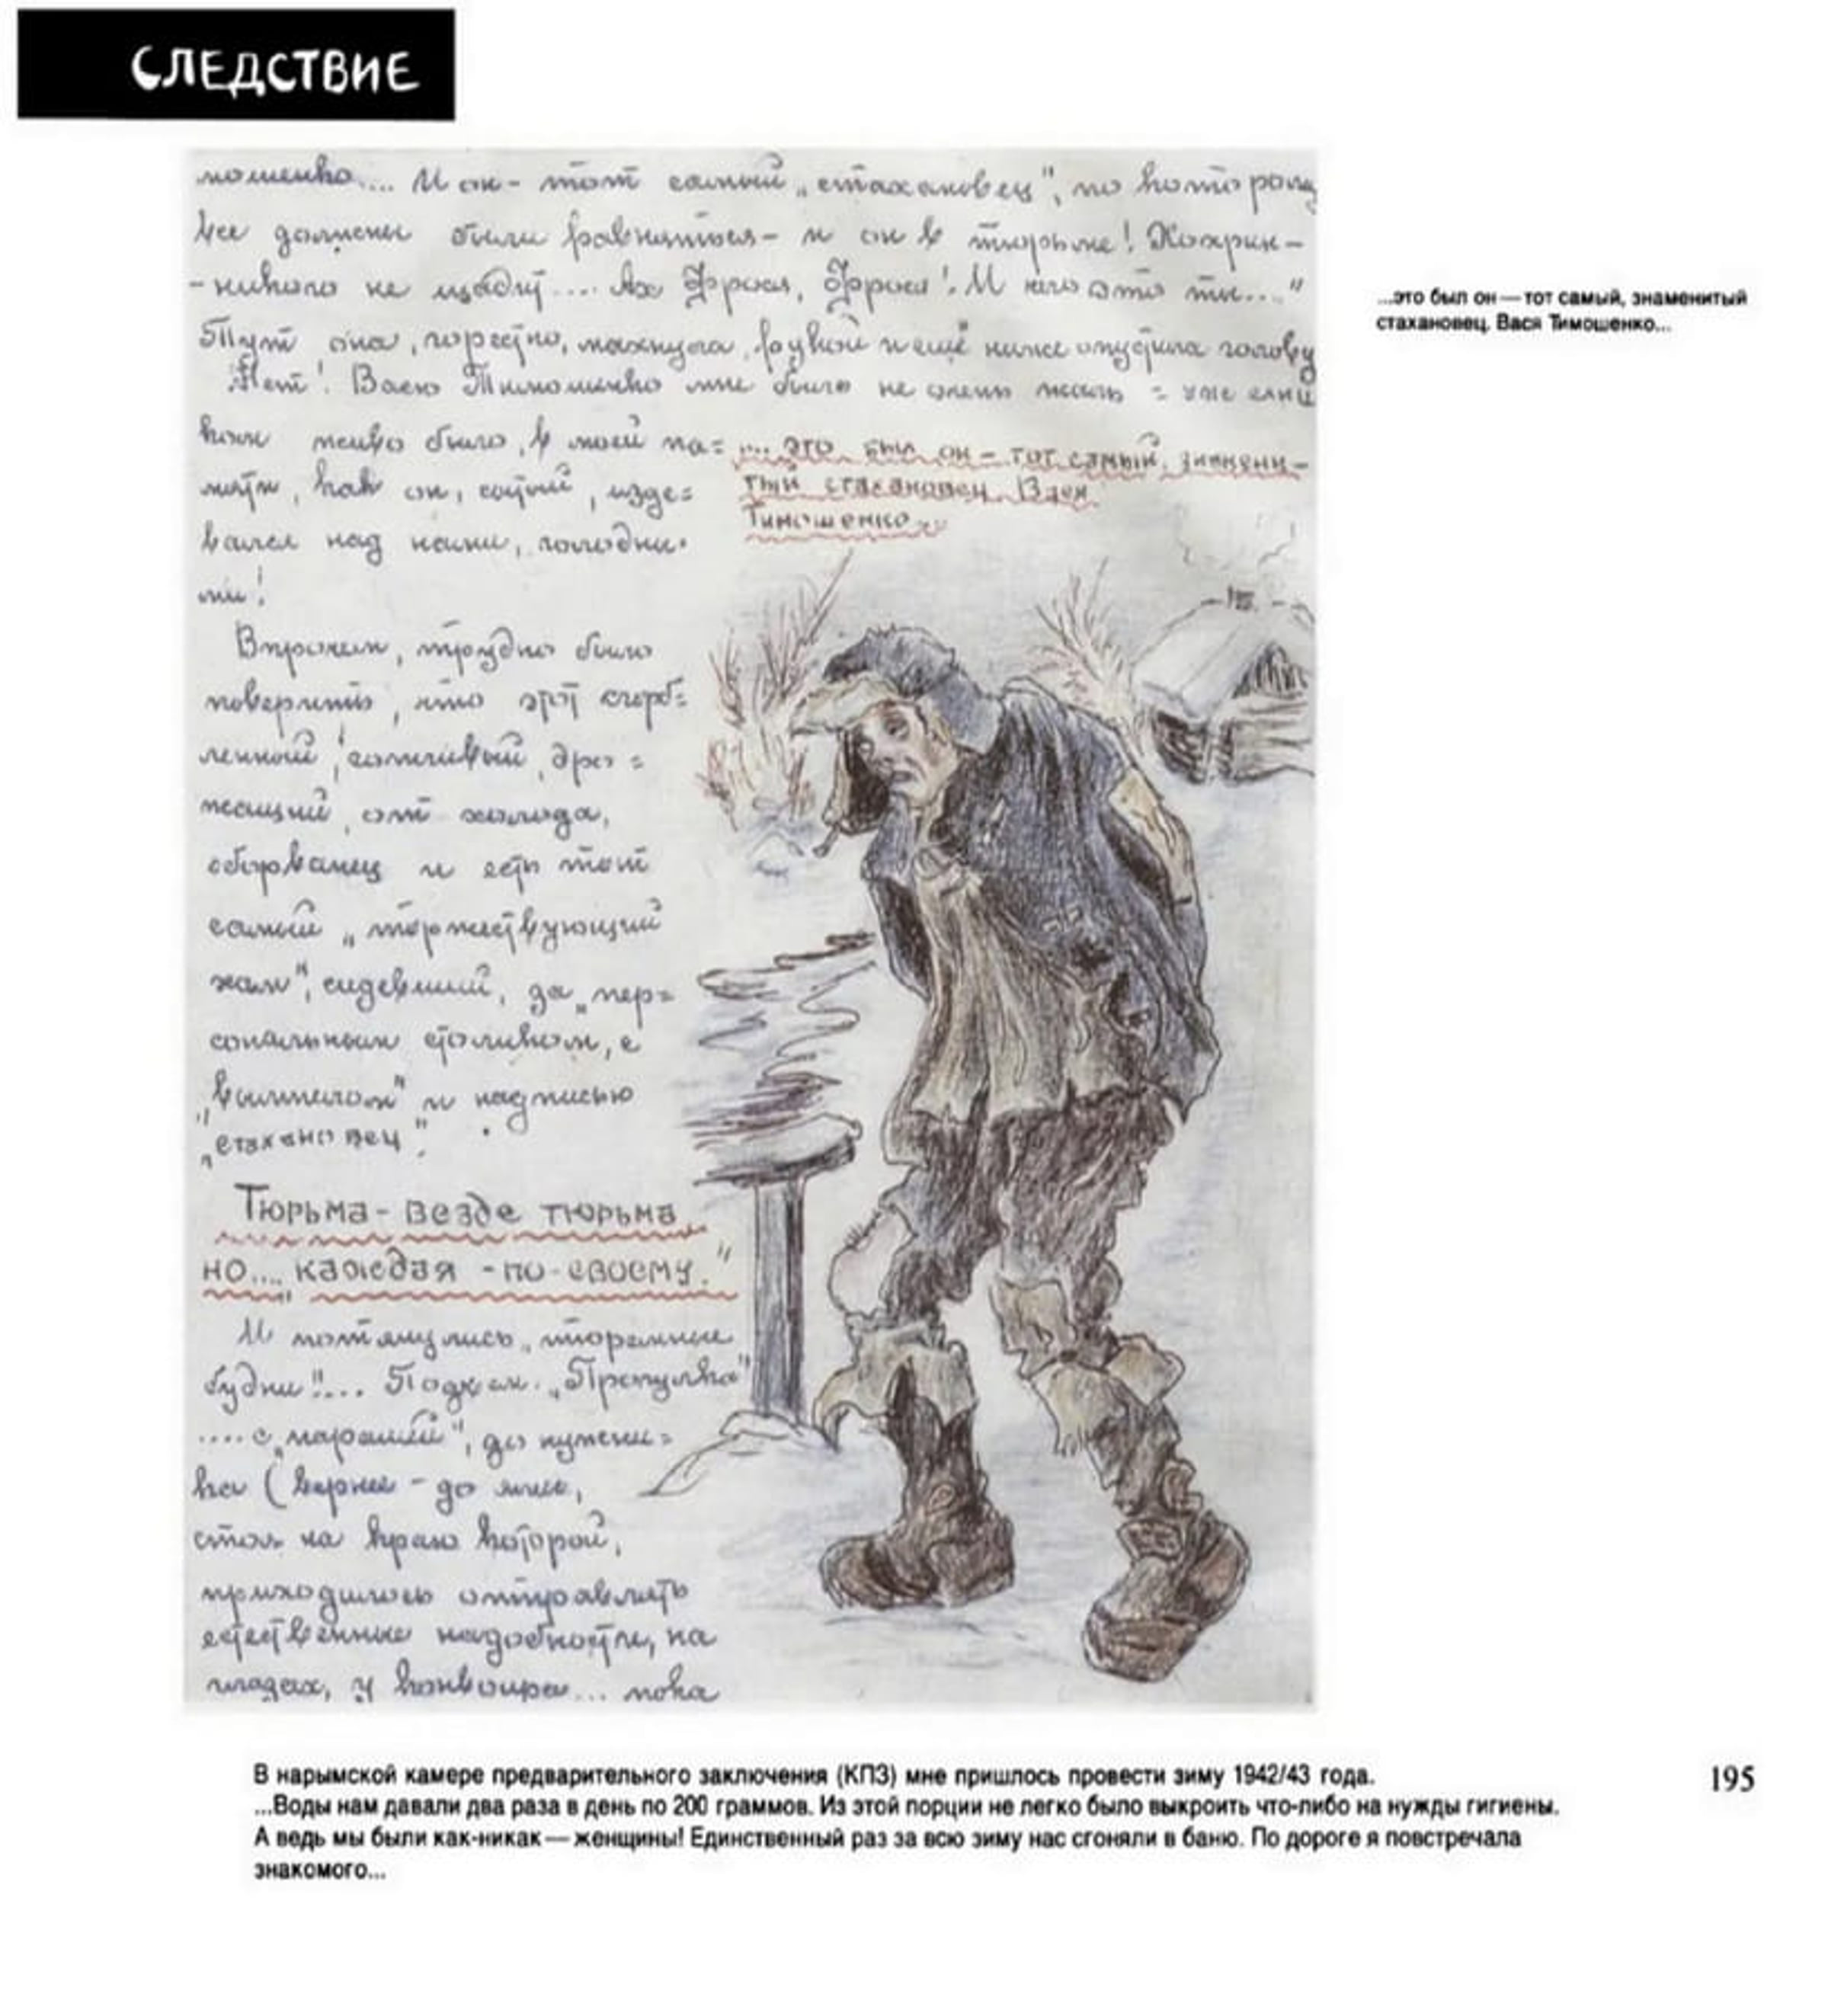 СЛЕДСТВИЕ
мошенко.... И он - тот самый „стахановец", по которому
все должны были равняться - и он в тюрьме! Хохрин -
- никого не щадит.... Ах Фрося, Фрося! И чего это ты...."
Тут она, горестно, махнула, рукой и ещё ниже опустила голову
Нет! Васю Тимошенко мне было не очень жаль =
живо было, в моей па=
мяти, как он, сытый, изде=
вался над нами, голодны-
ми!
...это был он - тот самый, знамени-
тый стахановец Вася
Тимошенко...
Впрочем, трудно было
поверить, что этот сгорб=
ленный, сопливый, дро=
жащий, от холода,
оборванец и есть тот
самый „торжествующий
хам", сидевший, за „пер=
сональным столиком, с
„вымпелом" и надписью
„стахановец".
Тюрьма - везде тюрьма
но.... каждая - по-своему."
И потянулись „тюремные
будни"!... Подъём. „Прогулка"
.... с „парашей", до нужни=
ка (вернее - до ямы,
стоя на краю которой,
приходилось отправлять
естественные надобности, на
глазах, у конвоира... пока
...это был он — тот самый, знаменитый
стахановец. Вася Тимошенко...
В нарымской камере предварительного заключения (КПЗ) мне пришлось провести зиму 1942/43 года.
...Воды нам давали два раза в день по 200 граммов. Из этой порции не легко было выкроить что-либо на нужды гигиены.
А ведь мы были как-никак — женщины! Единственный раз за всю зиму нас сгоняли в баню. По дороге я повстречала
знакомого...
195